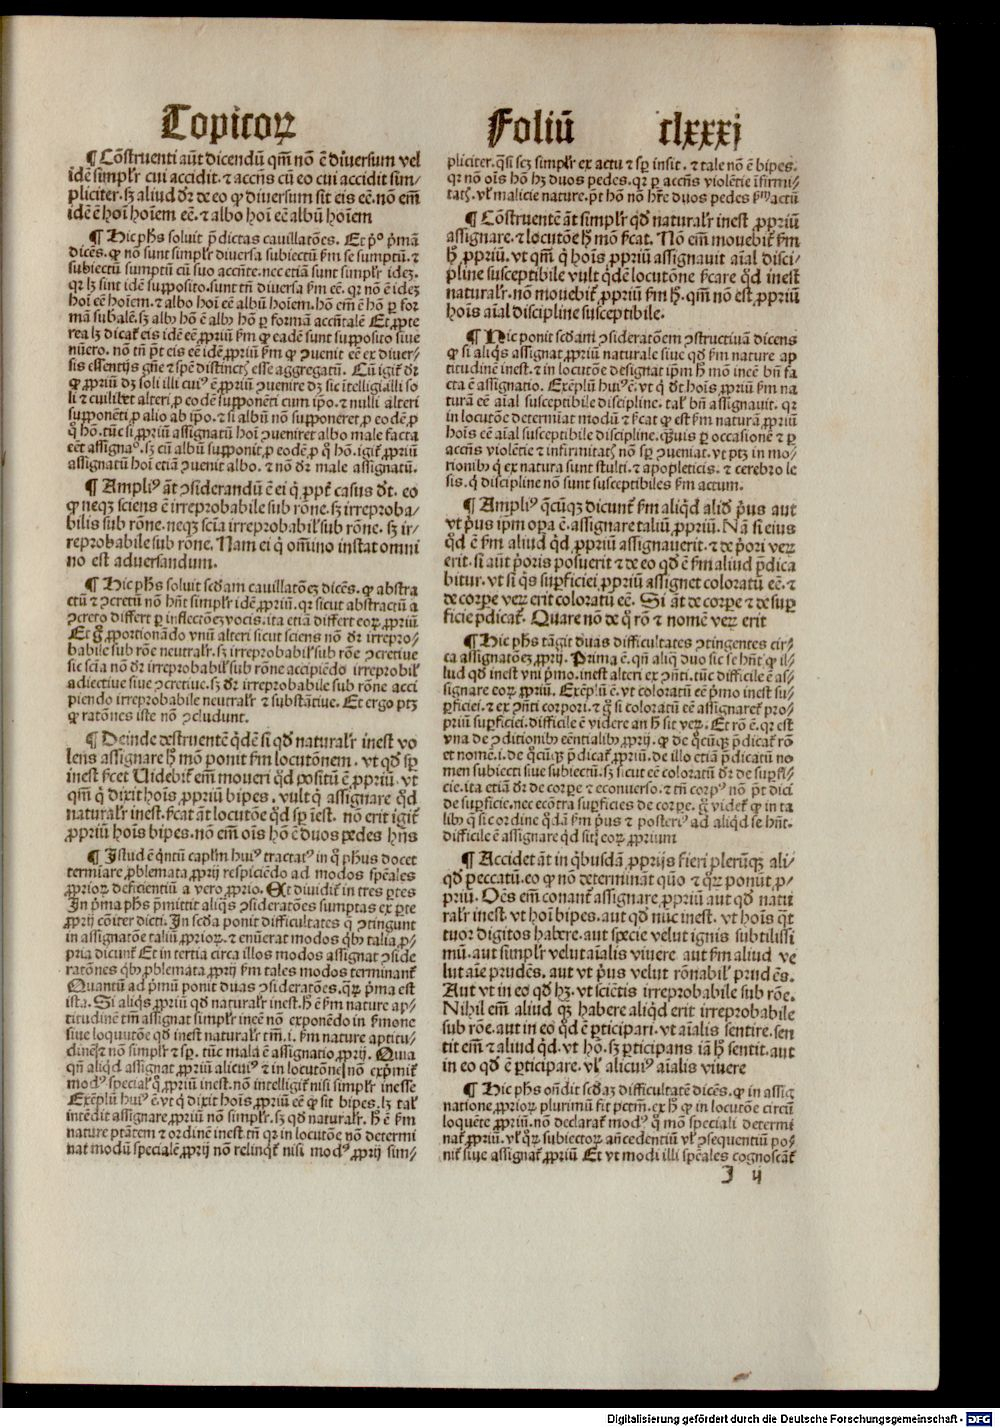 Topicoꝝ Foliū clxxxj
¶ Cōstruenti aūt dicendū qm̄ nō ē diuersum vel
idē simplr̄ cui accidit. ⁊ accn̄s cū eo cui accidit sim/
pliciter. sꝫ aliud dr̄ de eo ꝙ diuersum sit eis eē. nō em̄
idē ē hoī hoīem eē. ⁊ albo hoī eē albū hoīem
¶ Hic ph̄s soluit p̄dictas cauillatōes. Et pº pmā
dicēs. ꝙ nō sunt simplr̄ diuersa subiectū ẜm se sumptū. ⁊
subiectū sumptū cū suo accn̄te. nec etiā sunt simplr̄ ideꝫ.
qꝛ lꝫ sint idē supposito. sunt tn̄ diuersa ẜm eē. qꝛ nō ē ideꝫ
hoī eē hoīem. ⁊ albo hoī eē albū hoīem. hō em̄ ē hō ꝑ for
mā subalē. sꝫ albꝰ hō ē albꝰ hō ꝑ formā accn̄talē Et ꝓpte
rea lꝫ dicat̄ eis idē eē ꝓpriū ẜm ꝙ eadē sunt supposito siue
nūero. nō tn̄ p̄t eis eē idē ꝓpriū ẜm ꝙ ꝯuenit eē ex diuer/
sis essentijs gn̄e ⁊ spē distinctꝭ esse aggregatū. Cū igit̄ dr̄
ꝙ ꝓpriū dꝫ soli illi cuiꝰ ē ꝓpriū ꝯuenire dꝫ sic ītelligi. illi so
li ⁊ cuilibet alteri. p eodē supponēti cum ip̄o. ⁊ nulli alteri
supponēti. p alio ab ip̄o. ⁊ si albū nō supponeret. p eodē. p
q̄ hō. tūc si ꝓpriū assignatū hoī ꝯueniret albo male facta
eēt assignaº. sꝫ cū albū supponit. p eodē. p q̄ hō. igit̄ ꝓpriū
assignatū hoī etiā ꝯuenit albo. ⁊ nō dr̄ male assignatū.
¶ Ampliꝰ āt ꝯsiderandū ē ei q̄ ꝓpt̄ casus dr̄. eo
ꝙ neqꝫ sciens ē irreprobabile sub rōne. sꝫ irreproba/
bilis sub rōne. neqꝫ scīa irreprobabil̓ sub rōne. sꝫ ir/
reprobabile sub rōne. Nam ei q̄ oīmo instat omni
no est aduersandum.
¶ Hic ph̄s soluit scd̄am cauillatōeꝫ dicēs. ꝙ abstra
ctū ⁊ ꝯcretū nō hn̄t simplr̄ idē ꝓpriū. qꝛ sicut abstractū a
ꝯcreto differt ꝑ inflectōeꝫ vocis. ita etiā differt eoꝝ ꝓpriū
Et g̊ ꝓportionādo vnū alteri sicut sciens nō dr̄ irrepro/
babile sub rōe neutralr̄. sꝫ irreprobabil̓ sub rōe ꝯcretiue
sic scīa nō dr̄ irreprobabil̓ sub rōne accipiēdo irreprobil̓
adiectiue siue ꝯcretiue. sꝫ dr̄ irreprobabile sub rōne acci
piendo irreprobabile neutralr̄ ⁊ substātiue. Et ergo ptꝫ
ꝙ ratōnes iste nō ꝯcludunt.
¶ Deinde destruentē qd̄ē si qd̄ naturalr̄ inest vo
lens assignare h̄ mō ponit ẜm locutōnem. vt qd̄ sp̄
inest ẜcet Videbit̄ em̄ moueri qd̄ positū ē ꝓpriū. vt
qm̄ q̄ dixit hoīs ꝓpriū bipes. vult q̄ assignare qd̄
naturalr̄ inest. ẜcat āt locutōe qd̄ sp̄ inest. nō erit igit̄
ꝓpriū hoīs bipes. nō em̄ oīs hō ē duos pedes hn̄s
¶ Istud ē qntū caplm̄ huiꝰ tractatꝰ in q̄ ph̄us docet
termiare ꝓblemata ꝓprij respiciēdo ad modos spēales
ꝓprioꝝ deficientiū a vero ꝓprio. Et diuidit̄ in tres ꝑtes
In pma ph̄s pmittit aliqͣs ꝯsideratōes sumptas ex ꝑte
ꝓprij cōiter dicti. In scd̄a ponit difficultates q̄ ꝯtingunt
in assignatōe taliū ꝓprioꝝ. ⁊ enūerat modos qͥbꝰ talia ꝓ/
pria dicunt̄ Et in tertia circa illos modos assignat ꝯside
ratōnes qͥbꝰ ꝓblemata ꝓprij ẜm tales modos terminant̄
Quantū ad pmū ponit duas ꝯsideratōes. qꝝ pma est
ista. Si aliqͥs ꝓpriū qd̄ naturalr̄ inest. h̄ ē ẜm nature ap/
titudinē tm̄ assignat simplr̄ ineē nō exponēdo in ẜmone
siue loquutōe qd̄ inest naturalr̄ tm̄. i. ẜm nature aptitu/
dinēꝫ ⁊ nō simplr̄ ⁊ sp̄. tūc mala ē assignatio ꝓprij. Quia
qn̄ aliqd̄ assignat̄ ꝓpriū alicuiꝰ ⁊ in locutōneꝫ nō exp̄mit̄
modꝰ special̓ q̊ ꝓpriū inest. nō intelligit̄ nisi simplr̄ inesse
Exēplū huiꝰ ē. vt q̄ dixit hoīs ꝓpriū eē ꝙ sit bipes. lꝫ tal̓
intēdit assignare ꝓpriū nō simplr̄. sꝫ qd̄ naturalr̄. h̄ ē ẜm
nature ptātem ⁊ ordinē inest. tn̄ qꝛ in locutōe nō determi
nat modū specialē ꝓprij nō relinqt̄ nisi modꝰ ꝓprij sim/
pliciter. qͣsi scꝫ simplr̄ ex actu ⁊ sp̄ insit. ⁊ tale nō ē bipes.
qꝛ nō oīs hō hꝫ duos pedes. qꝛ ꝑ accn̄s violētie īfirmi/
tatꝭ. vl̓ malicie nature. p̄t hō nō hr̄e duos pedes ẜm actū
¶ Cōstruentē āt simplr̄ qd̄ naturalr̄ inest ꝓpriū
assignare. ⁊ locutōe h̄ mō ẜcat. Nō em̄ mouebit̄ ẜm
h̄ ꝓpriū. vt qm̄ q̄ hoīs ꝓpriū assignauit aīal disci/
pline susceptibile vult qd̄ē locutōne ẜcare qd̄ inest
naturalr̄. nō mouebit̄ ꝓpriū ẜm h̄. qm̄ nō est ꝓpriū
hoīs aīal discipline susceptibile.
¶ Hic ponit scd̄am ꝯsideratōem ꝯstructiuā dicens
ꝙ si aliqͥs assignat ꝓpriū naturale siue qd̄ ẜm nature ap
titudinē inest. ⁊ in locutōe designat ip̄m h̄ mō ineē bn̄ fa
cta ē assignatio. Exēplū huiꝰ ē. vt q̄ dt̄ hoīs ꝓpriū ẜm na
turā eē aīal susceptibile discipline. tal̓ bn̄ assignauit. qꝛ
in locutōe determīat modū ⁊ ẜcat ꝙ est ẜm naturā ꝓpriū
hoīs eē aīal susceptibile discipline. qͣuis ꝑ occasionē ⁊ ꝑ
accn̄s violētie ⁊ infirmitatꝭ nō sp̄ ꝯueniat. vt ptꝫ in mo/
rionibꝰ q̄ ex natura sunt stulti. ⁊ apopleticis. ⁊ cerebro le
sis. q̄ discipline nō sunt susceptibiles ẜm actum.
¶ Ampliꝰ q̄cūqꝫ dicunt̄ ẜm aliqd̄ aliud p̄us aut
vt p̄us ip̄m oꝑa ē. assignare taliū ꝓpriū. Nā si eius
qd̄ ē ẜm aliud qd̄ ꝓpriū assignauerit. ⁊ de p̄ori veꝝ
erit. si aūt p̄oris posuerit ⁊ de eo qd̄ ē ẜm aliud p̄dica
bitur. vt si qͥs suꝑficiei ꝓpriū assignet coloratū eē. ⁊
de corꝑe veꝝ erit coloratū eē. Si āt de corꝑe ⁊ de suꝑ
ficie p̄dicat̄. Quare nō de q̊ rō ⁊ nomē veꝝ erit
¶ Hic ph̄s tāgit duas difficultates ꝯtingentes cir/
ca assignatōeꝫ ꝓprij. Prima ē. qn̄ aliq̄ duo sic se hn̄t ꝙ il/
lud qd̄ inest vni p̄mo. inest alteri ex ꝯn̄ti. tūc difficile ē as/
signare eoꝝ ꝓpriū. Exēplū ē. vt coloratū eē p̄mo inest su/
ꝑficiei. ⁊ ex ꝯn̄ti corpori. ⁊ g̊ si coloratū eē assignaret̄ pro/
priū suꝑficiei. difficile ē videre an h̄ sit veꝝ. Et rō ē. qꝛ est
vna de ꝯditionibꝰ eēntialibꝰ ꝓprij. ꝙ de q̊cūqꝫ p̄dicat̄ rō
et nomē. i. de q̊cūqꝫ p̄dicat̄ ꝓpriū. de illo etiā p̄dicatū no
men subiecti siue subiectū. sꝫ sicut eē coloratū dr̄ de suꝑfi/
cie. ita etiā dr̄ de corꝑe ⁊ econuerso. ⁊ tn̄ corpꝰ nō p̄t dici
de suꝑficie. nec ecōtra suꝑficies de corꝑe. g̊ videt̄ ꝙ in ta
libꝰ q̄ sic ordine qd̄ā ẜm p̄us ⁊ posteriꝰ ad aliqd̄ se hn̄t.
difficile ē assignare qd̄ sit eoꝝ ꝓprium
¶ Accidet āt in qͥbusdā ꝓprijs fieri plerūqꝫ ali/
qd̄ peccatū. eo ꝙ nō determināt quō ⁊ qꝝ ponūt ꝓ/
priū. Oēs em̄ conant̄ assignare ꝓpriū aut qd̄ natu
ralr̄ inest. vt hoī bipes. aut qd̄ nūc inest. vt hoīs qͣt
tuor digitos habere. aut specie velut ignis subtilissi
mū. aut simplr̄ velut aīalis viuere aut ẜm aliud ve
lut aīe prudēs. aut vt p̄us velut rōnabil̓ prudēs.
Aut vt in eo qd̄ hꝫ. vt sciētis irreprobabile sub rōe.
Nihil em̄ aliud qꝫ habere aliqd̄ erit irreprobabile
sub rōe. aut in eo qd̄ ē ꝑticipari. vt aīalis sentire. sen
tit em̄ ⁊ aliud qd̄. vt hō. sꝫ ꝑticipans iā h̄ sentit. aut
in eo qd̄ ē ꝑticipare. vl̓ alicuiꝰ aīalis viuere
¶ Hic ph̄s on̄dit scd̄aꝫ difficultatē dicēs. ꝙ in assig
natione ꝓprioꝝ plurimū fit pctm̄. ex h̄ ꝙ in locutōe circū
loquēte ꝓpriū. nō declarat̄ modꝰ q̊ mō speciali determi
nat̄ ꝓpriū. vl̓ qꝝ subiectoꝝ an̄cedentiū vl̓ ꝯsequentiū po/
nit̄ siue assignat̄ ꝓpriū Et vt modi illi spēales cognoscāt̄
I ij
Digitalisierung gefördert durch die Deutsche Forschungsgemeinschaft - DFG